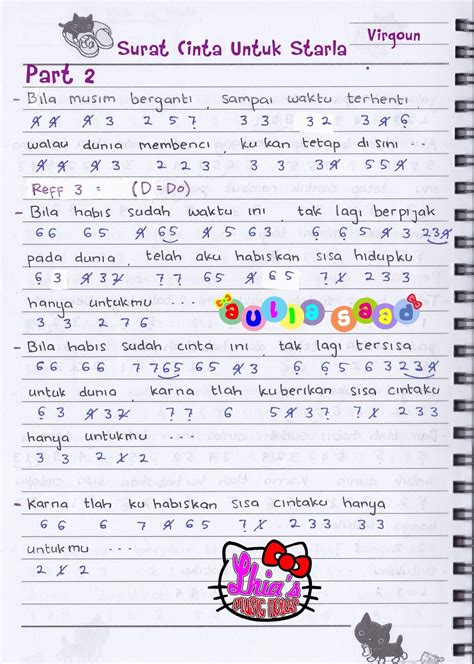 Surat Cinta Untuk Starla
Virgoun
Part 2
- Bila musim berganti, sampai waktu terhenti
4̸ 4̸ 4̸ 3 2 5 7 3 3 3 2 3 4̸ 6
walau dunia membenci, ku kan tetap di sini ...
4̸ 4̸ 4̸ 3 2 2 3 3 3 3 3 4̸ 5 5 4̸
Reff 3 = (D = Do)
- Bila habis sudah waktu ini, tak lagi berpijak
6 6 6 5 4̸ 6 5 4̸ 5 6 5 6 6 5 4̸ 3 2 3 4̸
pada dunia, telah aku habiskan sisa hidupku
6 3 4̸ 3 2̸ 7 7 6 5 4̸ 6 5 7 1̸ 2 3 3
hanya untukmu ...
3 3 2 2 7 6
aulia saad
- Bila habis sudah cinta ini, tak lagi tersisa
6 6 6 6 7 7 6 5 6 5 4̸ 3 6 6 5 6 3 2 3 4̸
untuk dunia, karna tlah kuberikan sisa cintaku
6 3 4̸ 3 2̸ 7 7 6 5 4̸ 3 5 7 1̸ 2 3 3
hanya untukmu ...
3 3 2 2 1̸ 2
- Karna tlah ku habiskan sisa cintaku hanya
6 6 6 7 4̸ 6 5 7 1̸ 2 3 3 3 3
untukmu ...
2 1̸ 2
Lhia's
MUSIC NOTES